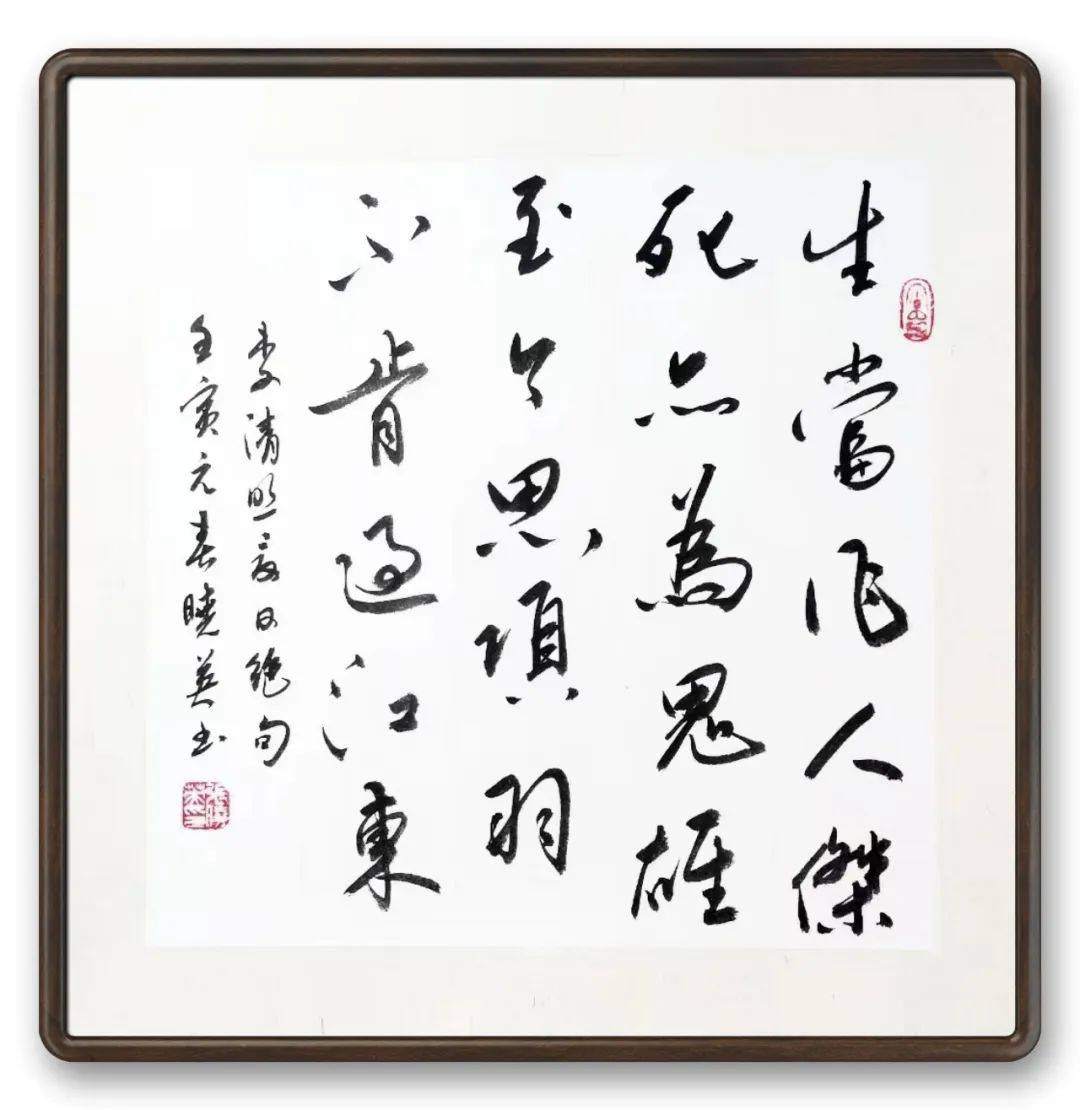 生當作人傑
死亦為鬼雄
至今思項羽
不肯過江東
李清照夏日絕句
壬寅元春曉英書